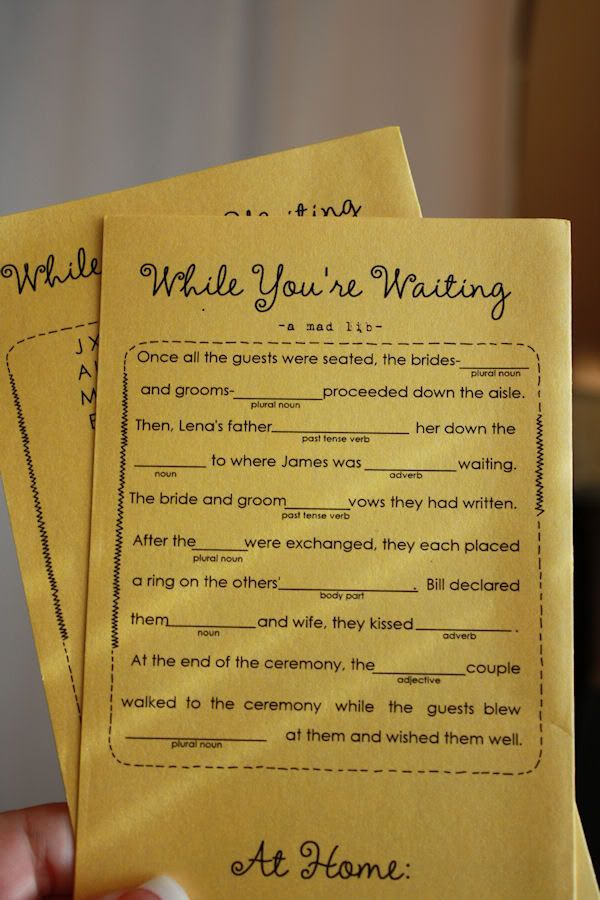 Waiting
While
J X
A
M
While You're Waiting
-a mad lib-
Once all the guests were seated, the brides-________
plural noun
and grooms-________proceeded down the aisle.
plural noun
Then, Lena's father________ her down the
past tense verb
________ to where James was ________waiting.
noun adverb
The bride and groom________vows they had written.
past tense verb
After the________were exchanged, they each placed
plural noun
a ring on the others'________. Bill declared
body part
them________and wife, they kissed ________.
noun adverb
At the end of the ceremony, the________couple
adjective
walked to the ceremony while the guests blew
________ at them and wished them well.
plural noun
At Home: